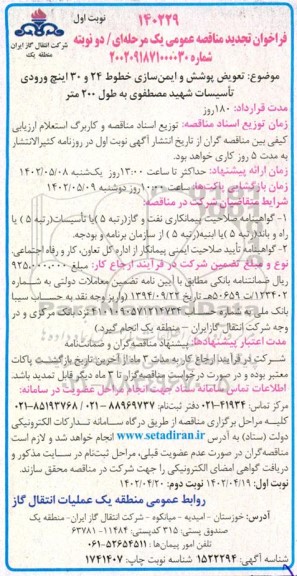 نوبت اول
۱۴۰۲۲۹
شرکت انتقال گاز ایران
منطقه یک
فراخوان تجدید مناقصه عمومی یک مرحله‌ای/ دو نوبته
شماره ۲۰۰۲۰۹۱۸۷۱۰۰۰۰۳۰
موضوع: تعویض پوشش و ایمن‌سازی خطوط ۲۴ و ۳۰ اینچ ورودی
تأسیسات شهید مصطفوی به طول ۲۰۰ متر
مدت قرارداد: ۱۸۰روز
زمان توزیع اسناد مناقصه: توزیع اسناد مناقصه و کاربرگ استعلام ارزیابی
کیفی بین مناقصه گران از تاریخ انتشار آگهی نوبت اول در روزنامه کثیرالانتشار
به مدت ۵ روز کاری خواهد بود.
زمان ارائه پیشنهاد: حداکثر تا ساعت ۱۳:۰۰روز یک‌شنبه ۱۴۰۲/۰۵/۰۸
زمان بازگشایی پاکت‌ها: ساعت ۱۰:۰۰روز دوشنبه ۱۴۰۲/۰۵/۰۹
شرایط متقاضیان شرکت در مناقصه:
۱- گواهینامه صلاحیت پیمانکاری نفت و گاز(رتبه ۵) یا تأسیسات(رتبه ۵) یا
راه و باند(رتبه ۵) یا ابنیه(رتبه ۵) از سازمان برنامه و بودجه.
۲- گواهینامه تأیید صلاحیت ایمنی پیمانکار از اداره کل تعاون، کار و رفاه اجتماعی
نوع و مبلغ تضمین شرکت در فرآیند ارجاع کار: مبلغ ۹۲۵,۰۰۰,۰۰۰
ریال ضمانتنامه بانکی مطابق با آیین نامه تضمین معاملات دولتی به شماره
۱۲۳۴۰۲/ت۵۰۶۵۹ه تاریخ ۱۳۹۴/۰۹/۲۲ (واریز وجه نقد به حساب سیبا
بانک ملی به شماره حساب نزد بانک مرکزی و در
وجه شرکت انتقال گاز ایران – منطقه یک انجام گیرد)
مدت اعتبار پیشنهادها: پیشنهاد مناقصه‌گران و ضمانت‌نامه
شرکت در فرآیند ارجاع کار به مدت ۳ ماه از آخرین تاریخ بازگشت پاکات
معتبر بوده و در صورت درخواست مناقصه‌گزار تا ۳ ماه دیگر قابل تمدید باشد.
اطلاعات تماس سامانه ستاد جهت انجام مراحل عضویت در سامانه:
مرکز تماس: ۴۱۹۳۴-۰۲۱ دفتر ثبت‌نام: ۸۸۹۶۹۷۳۷-۰۲۱ / ۸۵۱۹۳۷۶۸-۰۲۱
کلیه مراحل برگزاری مناقصه از طریق درگاه سامانه تدارکات الکترونیکی
دولت (ستاد) به آدرس www.setadiran.ir انجام خواهد شد و لازم است
مناقصه‌گران در صورت عدم عضویت قبلی، مراحل ثبت‌نام در سایت مذکور و
دریافت گواهی امضای الکترونیکی را جهت شرکت در مناقصه محقق سازند.
نوبت اول: ۱۴۰۲/۰۴/۱۹ نوبت دوم: ۱۴۰۲/۰۴/۲۰
روابط عمومی منطقه یک عملیات انتقال گاز
آدرس: خوزستان - امیدیه - میانکوه - شرکت انتقال گاز ایران- منطقه یک
صندوق پستی: ۳۱۵ کدپستی: ۱۱۴۸۴-۶۳۷۸۱
تلفن امور پیمان‌ها: ۵۲۶۵۴۵۱۱-۰۶۱
شناسه آگهی: ۱۵۲۲۲۹۴ شناسه نوبت چاپ: ۱۷۴۱۴۰۷